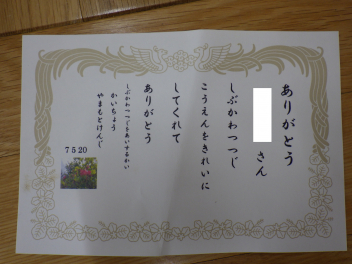 ありがとう
さん
しぶかわつつじ
こうえんをきれいに
してくれて
ありがとう
しぶかわつつじをあいするかい
かいちょう
やまもとけんじ
7 5 20